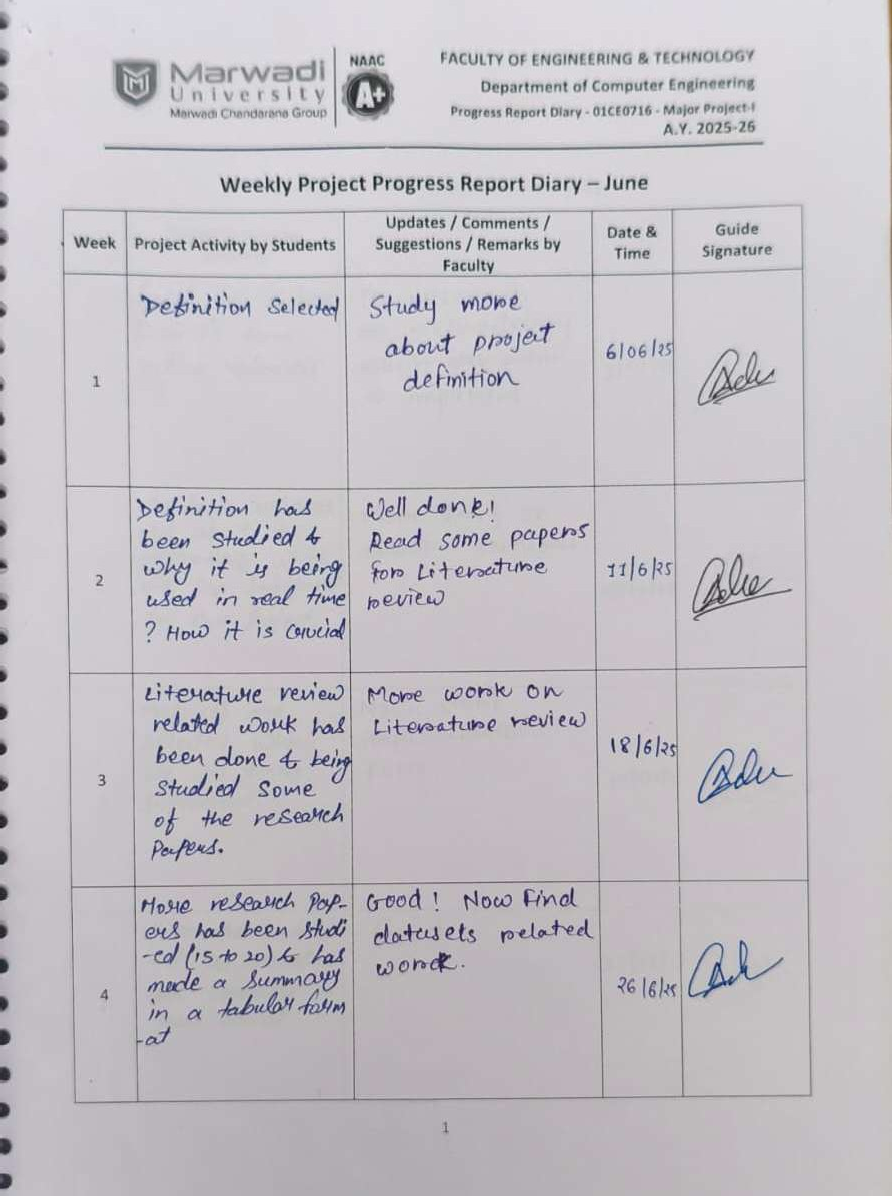 Marwadi
University
Marwadi Chandarana Group
NAAC
A+
FACULTY OF ENGINEERING & TECHNOLOGY
Department of Computer Engineering
Progress Report Diary - 01CE0716 - Major Project-I
A.Y. 2025-26
Weekly Project Progress Report Diary – June
Week
Project Activity by Students
Updates / Comments /
Suggestions / Remarks by
Faculty
Date &
Time
Guide
Signature
1
Definition Selected
Study more
about project
definition
6/06/25
2
Definition has
been studied &
why it is being
used in real time
? How it is crucial
Well done!
Read some papers
for Literature
review
11/6/25
3
Literature review
related work has
been done & being
studied some
of the research
Papers.
More work on
Literature review
18/6/25
4
More research Pap-
ers has been studi
-ed (15 to 20) & has
made a summary
in a tabular form
-at
Good! Now Find
datasets related
work.
26/6/25
1